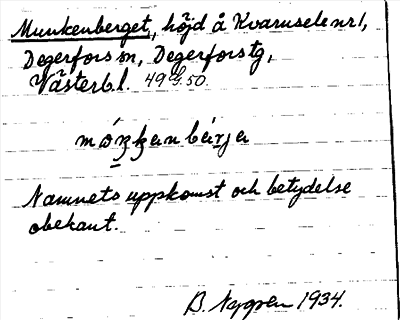 Munkenberget, höjd å Kvarnsele nr 1,
Degerfors sn, Degerfors tg,
Västerb. l. 49 G. 50
Namnets uppkomst och betydelse
obekant.
B. Nygren 1934.